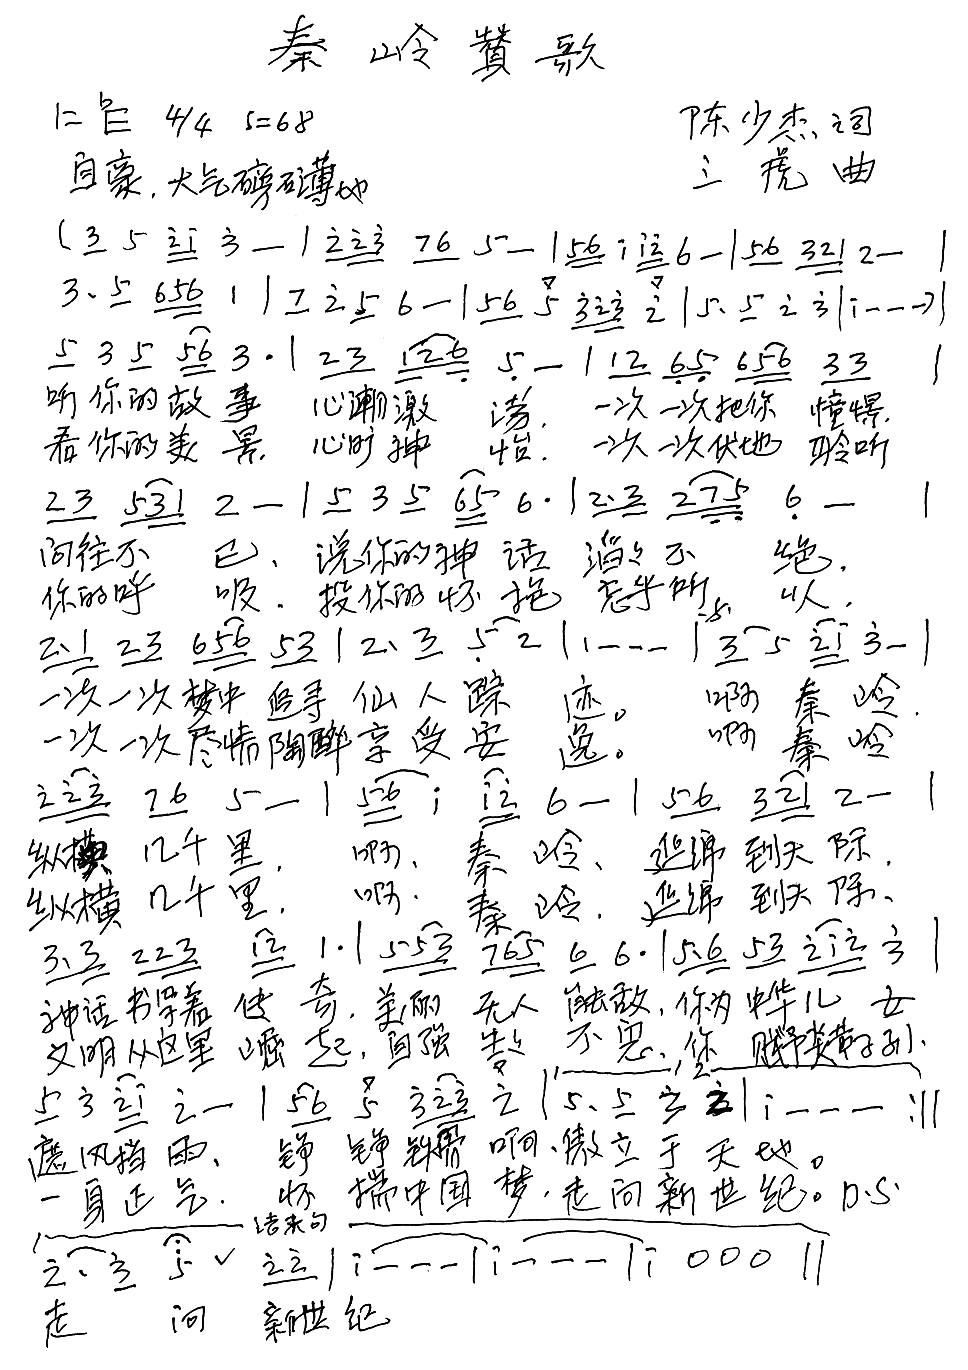 秦岭赞歌
1=♭E 4/4 5=68
陈少杰词
自豪、大气磅礴地
三虎曲
(3 5 2̇1̇ 3̇ — | 2̇2̇3̇ 76 5 — | 56 1̇ 1̇2̇ 6 — | 56 321 2 — |
3. 5 656 1 | 7 2̇ 5 6 — | 56 5 3̇2̇3̇ 2̇ | 5. 5 2̇ 3̇ | 1̇ - - - ) |
5 3 5 56 3 . | 23 126 5 — | 12 65 656 33 |
听你的故事 心潮激荡. 一次一次把你 憧憬.
看你的美景. 心旷神怡. 一次一次伏地 聆听
23 531 2 — | 5 3 5 65 6 . | 2.3 275 6 — |
向往不已、说你的神话 滔滔不绝.
你的呼吸. 投你的怀抱 怎乎所以.
2.1 23 656 53 | 2. 3 5 2 | 1 - - - | 3 5 2̇1̇ 3̇ — |
一次一次梦中 追寻 仙人踪迹。 啊 秦岭.
一次一次尽情陶醉享受安逸。 啊 秦岭
2̇2̇3̇ 76 5 — | 56 1̇ 1̇2̇ 6 — | 56 321 2 — |
纵横 几千里. 啊. 秦岭、延绵到天际.
纵横 几千里. 啊. 秦岭. 延绵到天际、
3.3 223 1̇2̇ 1 . | 553 765 6 6 . | 5.6 53 2̇1̇2̇ 3̇ |
神话书写着 传奇. 美丽 无人能敌. 你为中华儿女
文明从这里崛起. 自强 不息、你 赋予类黄子孙.
5 3̇ 2̇1̇ 2̇ — | 56 5 3̇2̇3̇ 2̇ | 5. 5 3̇ 2̇ | 1̇ - - - - :||
遮风挡雨、 铮铮铁骨啊、傲立于天地。
一身正气. 怀揣中国梦. 走向新世纪。D.S.
结束句
2̇. 3̇ 5̇ ✓ 2̇2̇ | 1̇ - - - | 1̇ - - - - | 1̇ 0 0 0 ||
走 向 新世纪